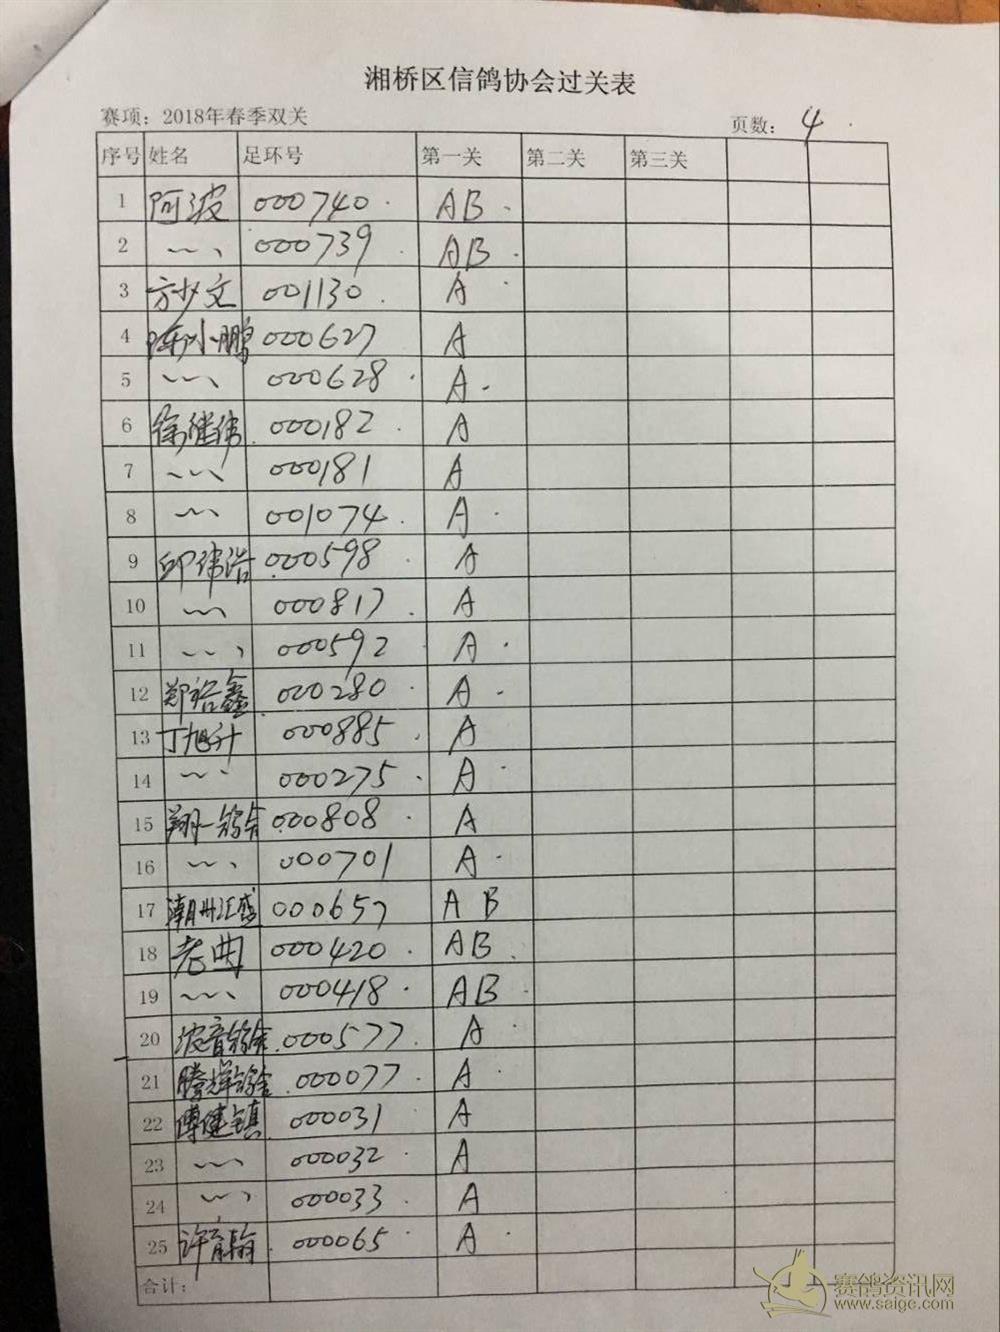 湘桥区信鸽协会过关表
赛项：2018年春季双关 页数：4
序号 姓名 足环号 第一关 第二关 第三关
1 阿波 000740 AB
2 〃 000739 AB
3 方少文 001130 A
4 陈小鹏 000627 A
5 〃 000628 A
6 徐继伟 000182 A
7 〃 000181 A
8 〃 001074 A
9 邱伟浩 000598 A
10 〃 000817 A
11 〃 000592 A
12 郑裕鑫 000280 A
13 丁旭升 000885 A
14 〃 000275 A
15 翔一鸽舍 000808 A
16 〃 000701 A
17 潮州汇盛 000657 AB
18 老曲 000420 AB
19 〃 000418 AB
20 波音鸽舍 000577 A
21 腾辉鸽舍 000077 A
22 傅健镇 000031 A
23 〃 000032 A
24 〃 000033 A
25 许育翰 000065 A
合计：
赛鸽资讯网
www.saige.com